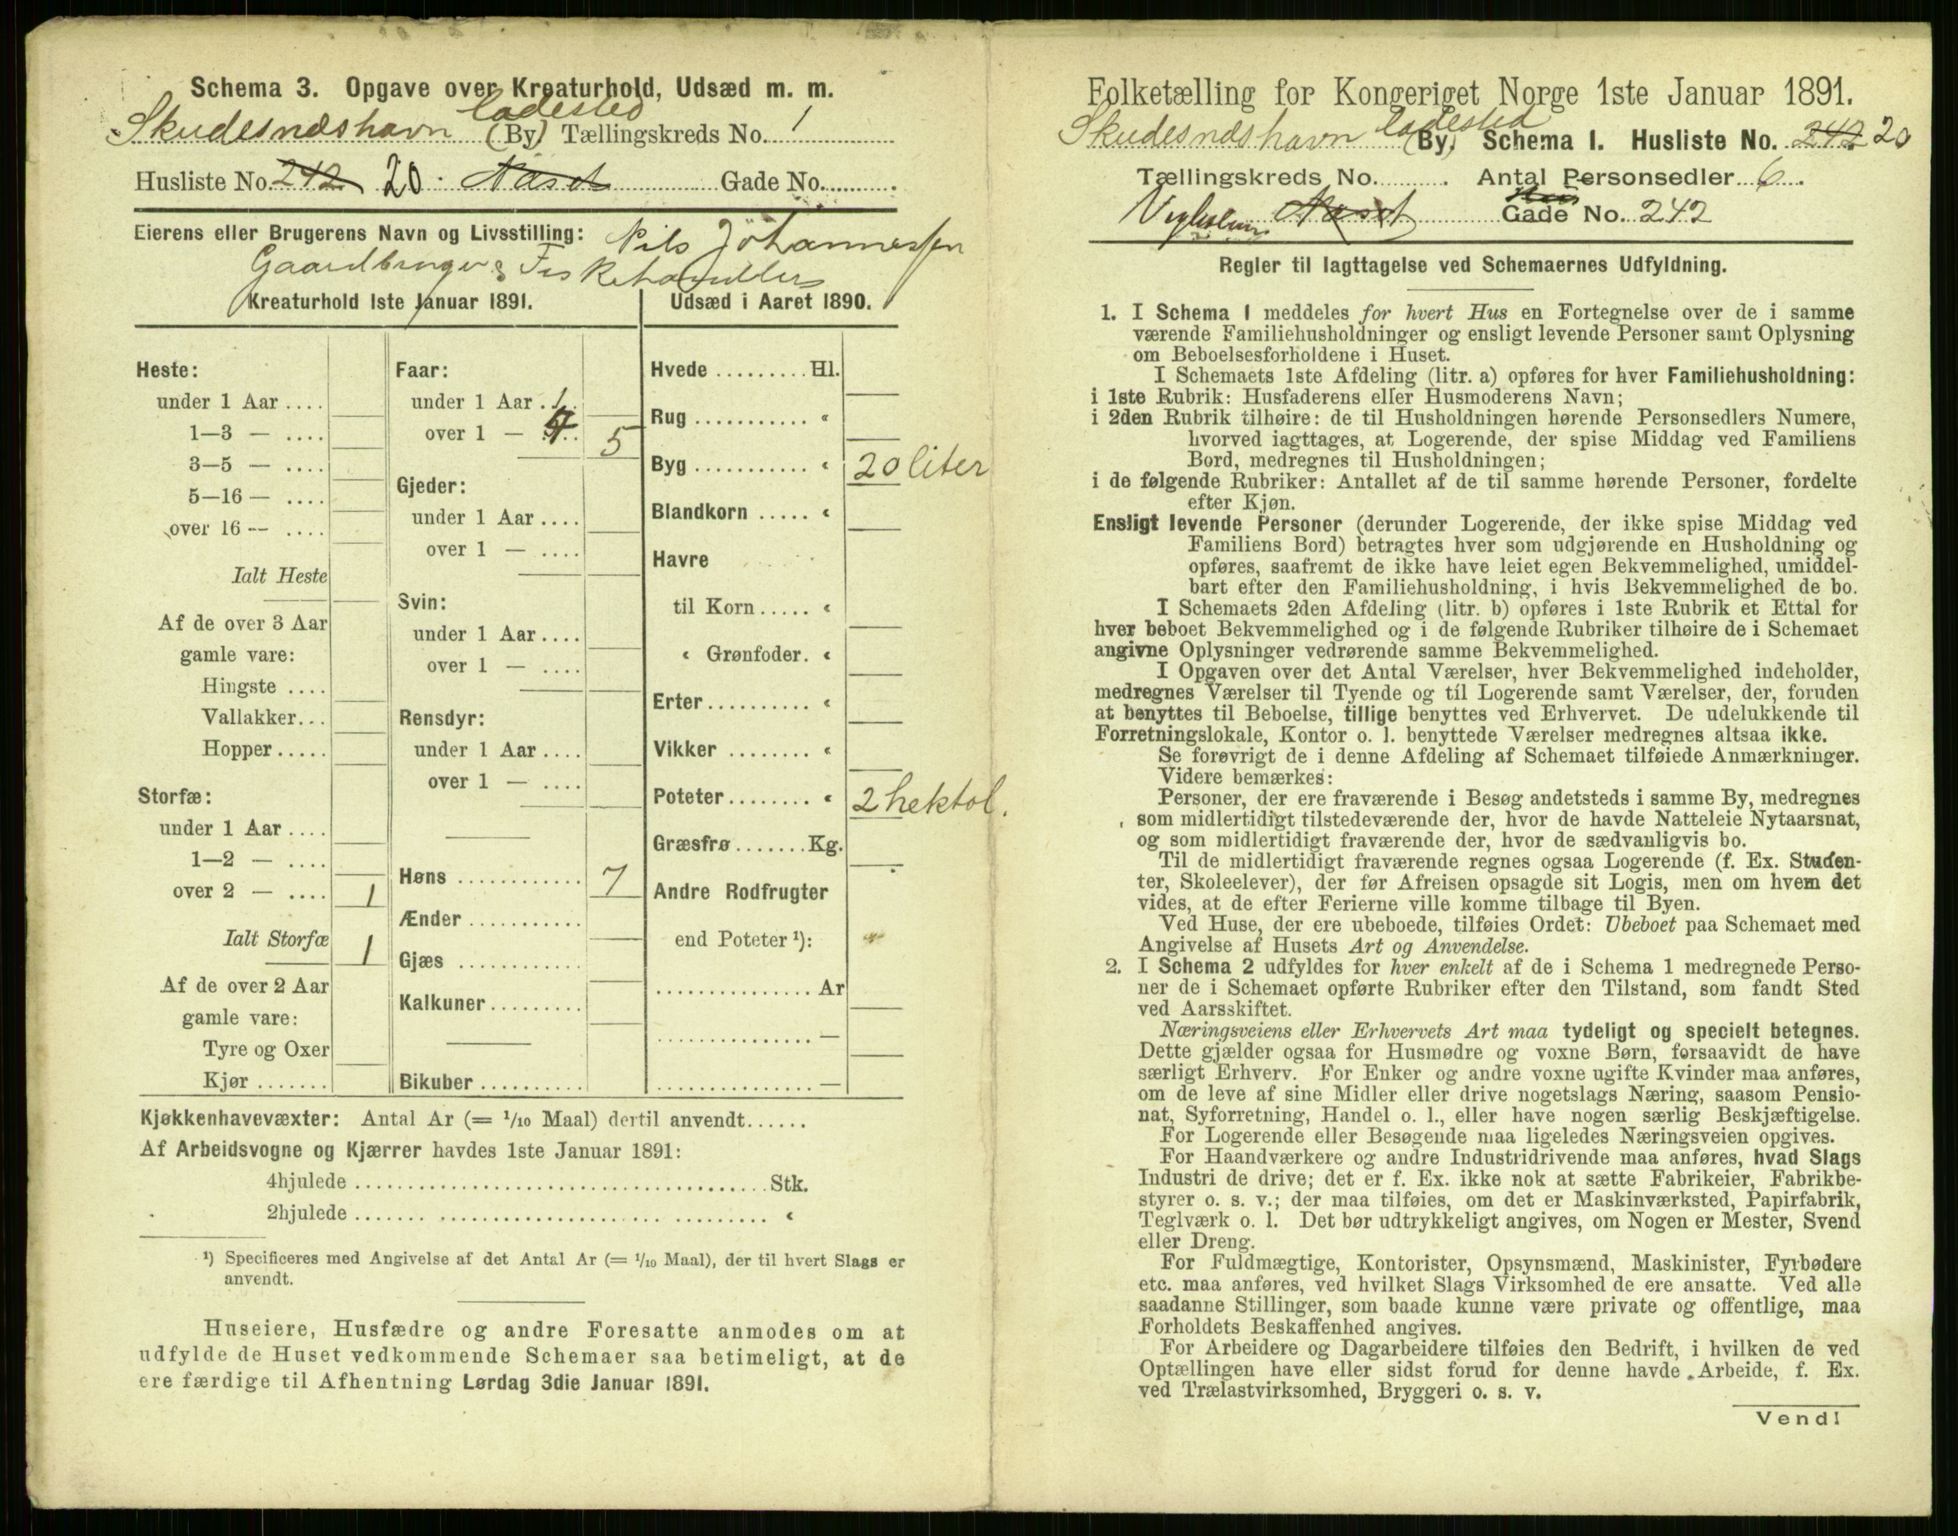 Schema 3. Opgave over Kreaturhold, Udsæd m. m.
Skudesnæshavn ladested (By) Tællingskreds No. 1
Husliste No. 242 20. Gade No.
Eierens eller Brugerens Navn og Livsstilling: Nils Johannessen
Gaardbruger & Fiskehandler
Kreaturhold 1ste Januar 1891.
Heste:
under 1 Aar ....
1—3 — ....
3—5 — ....
5—16 — ....
over 16 — ....
Ialt Heste
Af de over 3 Aar
gamle vare:
Hingste ....
Vallakker...
Hopper.....
Storfæ:
under 1 Aar ....
1—2 — ....
over 2 — .... 1
Ialt Storfæ 1
Af de over 2 Aar
gamle vare:
Tyre og Oxer
Kjør.......
Faar:
under 1 Aar . 1
over 1 — 4 5
Gjeder:
under 1 Aar ....
over 1 — ....
Svin:
under 1 Aar ....
over 1 — ....
Rensdyr:
under 1 Aar ....
over 1 — ....
Høns ............ 7
Ænder ...........
Gjæs ............
Kalkuner.........
Bikuber..........
Udsæd i Aaret 1890.
Hvede .........Hl.
Rug ........... «
Byg ........... « 20 liter
Blandkorn ..... «
Havre
til Korn..... «
« Grønfoder. «
Erter.......... «
Vikker ........ «
Poteter........ « 2 hektol.
Græsfrø.......Kg.
Andre Rodfrugter
end Poteter ¹):
...............Ar
...............—
...............—
Kjøkkenhavevæxter: Antal Ar (= 1/10 Maal) dertil anvendt......
Af Arbeidsvogne og Kjærrer havdes 1ste Januar 1891:
4hjulede ......................................Stk.
2hjulede ....... ..................... ......... «
¹) Specificeres med Angivelse af det Antal Ar (= 1/10 Maal), der til hvert Slags er
anvendt.
Huseiere, Husfædre og andre Foresatte anmodes om at
udfylde de Huset vedkommende Schemaer saa betimeligt, at de
ere færdige til Afhentning Lørdag 3die Januar 1891.
Folketælling for Kongeriget Norge 1ste Januar 1891.
Skudesnæshavn ladested (By) Schema 1. Husliste No. 242 20
Tællingskreds No. . Antal Personsedler 6.
Gade No. 242
Regler til Iagttagelse ved Schemaernes Udfyldning.
1. I Schema 1 meddeles for hvert Hus en Fortegnelse over de i samme
værende Familiehusholdninger og ensligt levende Personer samt Oplysning
om Beboelsesforholdene i Huset.
I Schemaets 1ste Afdeling (litr. a) opføres for hver Familiehusholdning:
i 1ste Rubrik: Husfaderens eller Husmoderens Navn;
i 2den Rubrik tilhøire: de til Husholdningen hørende Personsedlers Numere,
hvorved iagttages, at Logerende, der spise Middag ved Familiens
Bord, medregnes til Husholdningen;
i de følgende Rubriker: Antallet af de til samme hørende Personer, fordelte
efter Kjøn.
Ensligt levende Personer (derunder Logerende, der ikke spise Middag ved
Familiens Bord) betragtes hver som udgjørende en Husholdning og
opføres, saafremt de ikke have leiet egen Bekvemmelighed, umiddel-
bart efter den Familiehusholdning, i hvis Bekvemmelighed de bo.
I Schemaets 2den Afdeling (litr. b) opføres i 1ste Rubrik et Ettal for
hver beboet Bekvemmelighed og i de følgende Rubriker tilhøire de i Schemaet
angivne Oplysninger vedrørende samme Bekvemmelighed.
I Opgaven over det Antal Værelser, hver Bekvemmelighed indeholder,
medregnes Værelser til Tyende og til Logerende samt Værelser, der, foruden
at benyttes til Beboelse, tillige benyttes ved Erhvervet. De udelukkende til
Forretningslokale, Kontor o. l. benyttede Værelser medregnes altsaa ikke.
Se forøvrigt de i denne Afdeling af Schemaet tilføiede Anmærkninger.
Videre bemærkes:
Personer, der ere fraværende i Besøg andetsteds i samme By, medregnes
som midlertidigt tilstedeværende der, hvor de havde Natteleie Nytaarsnat,
og som midlertidigt fraværende der, hvor de sædvanligvis bo.
Til de midlertidigt fraværende regnes ogsaa Logerende (f. Ex. Studen-
ter, Skoleelever), der før Afreisen opsagde sit Logis, men om hvem det
vides, at de efter Ferierne ville komme tilbage til Byen.
Ved Huse, der ere ubeboede, tilføies Ordet: Ubeboet paa Schemaet med
Angivelse af Husets Art og Anvendelse.
2. I Schema 2 udfyldes for hver enkelt af de i Schema 1 medregnede Perso-
ner de i Schemaet opførte Rubriker efter den Tilstand, som fandt Sted
ved Aarsskiftet.
Næringsveiens eller Erhvervets Art maa tydeligt og specielt betegnes.
Dette gjælder ogsaa for Husmødre og voxne Børn, forsaavidt de have
særligt Erhverv. For Enker og andre voxne ugifte Kvinder maa anføres,
om de leve af sine Midler eller drive nogetslags Næring, saasom Pensio-
nat, Syforretning, Handel o. l., eller have nogen særlig Beskjæftigelse.
For Logerende eller Besøgende maa ligeledes Næringsveien opgives.
For Haandværkere og andre Industridrivende maa anføres, hvad Slags
Industri de drive; det er f. Ex. ikke nok at sætte Fabrikeier, Fabrikbe-
styrer o. s. v.; der maa tilføies, om det er Maskinværksted, Papirfabrik,
Teglværk o. l. Det bør udtrykkeligt angives, om Nogen er Mester, Svend
eller Dreng.
For Fuldmægtige, Kontorister, Opsynsmænd, Maskinister, Fyrbødere
etc. maa anføres, ved hvilket Slags Virksomhed de ere ansatte. Ved alle
saadanne Stillinger, som baade kunne være private og offentlige, maa
Forholdets Beskaffenhed angives.
For Arbeidere og Dagarbeidere tilføies den Bedrift, i hvilken de ved
Optællingen have eller sidst forud for denne havde Arbeide, f. Ex.
ved Trælastvirksomhed, Bryggeri o. s. v.
Vend!